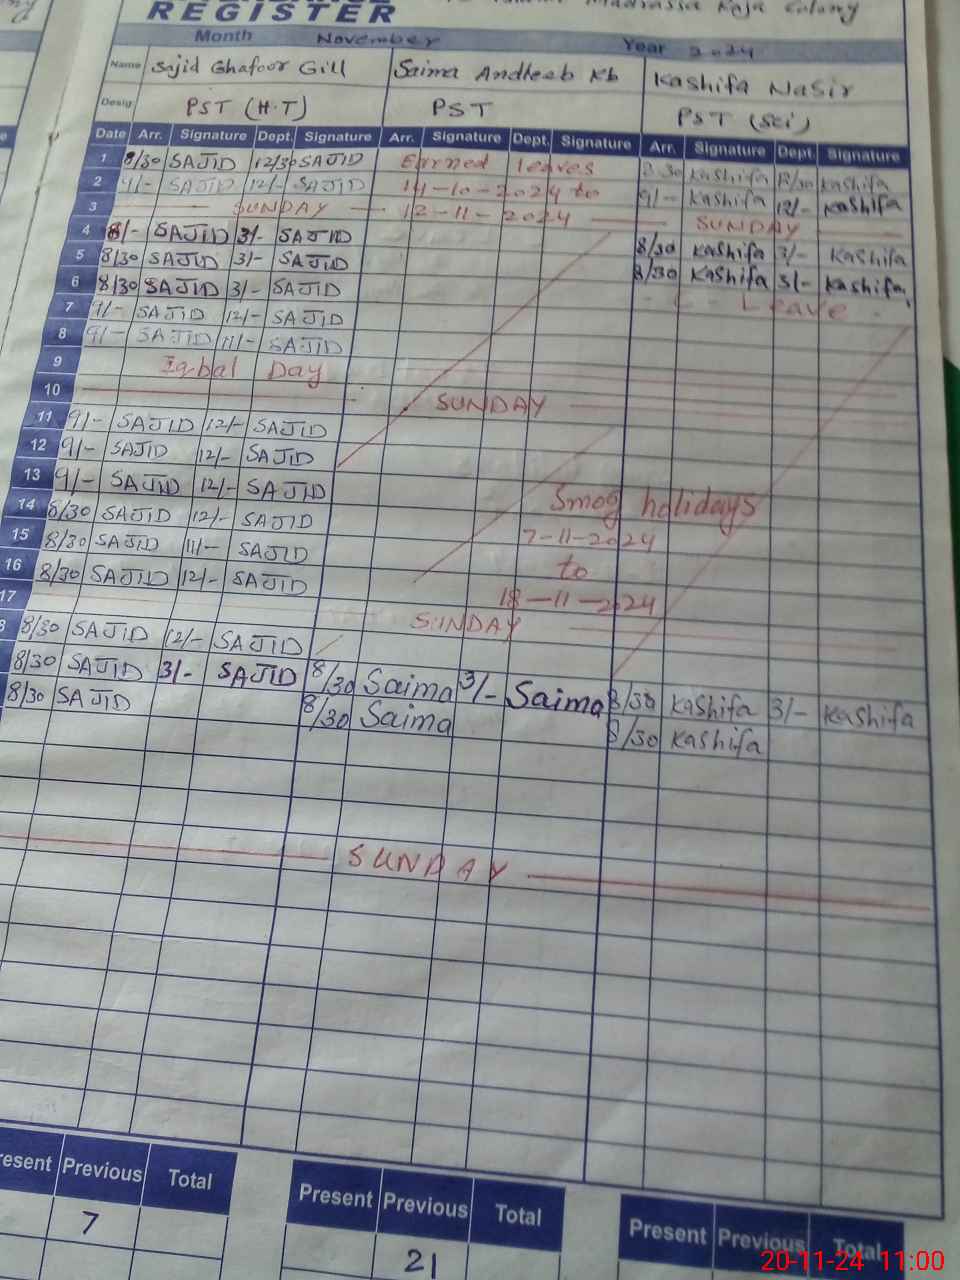 REGISTER
Month November Year 2024
Name Sajid Ghafoor Gill Saima Andleeb Kashifa Nasir
Desig: PST (H.T) PST PST (Sci)
Date Arr. Signature Dept. Signature Arr. Signature Dept. Signature Arr. Signature Dept. Signature
1 8/30 SAJID 12/30 SAJID Earned leaves 8.30 Kashifa 12/30 Kashifa
2 9/- SAJID 12/- SAJID 14-10-2024 to 9/- Kashifa 12/- Kashifa
3 SUNDAY 12-11-2024 SUNDAY
4 8/- SAJID 3/- SAJID 8/30 Kashifa 3/- Kashifa
5 8/30 SAJID 3/- SAJID 8/30 Kashifa 3/- Kashifa
6 8/30 SAJID 3/- SAJID Leave
7 9/- SAJID 12/- SAJID
8 9/- SAJID 11/- SAJID
9 Iqbal Day
10 SUNDAY
11 9/- SAJID 12/- SAJID
12 9/- SAJID 12/- SAJID
13 9/- SAJID 12/- SAJID Smog holidays
14 8/30 SAJID 12/- SAJID 7-11-2024
15 8/30 SAJID 11/- SAJID to
16 8/30 SAJID 12/- SAJID 18-11-2024
17 SUNDAY
8 8/30 SAJID 12/- SAJID
8/30 SAJID 3/- SAJID 8/30 Saima 3/- Saima 8/30 Kashifa 3/- Kashifa
8/30 SAJID 8/30 Saima 8/30 Kashifa
SUNDAY
resent Previous Total Present Previous Total Present Previous Total
7 21
20-11-24 11:00